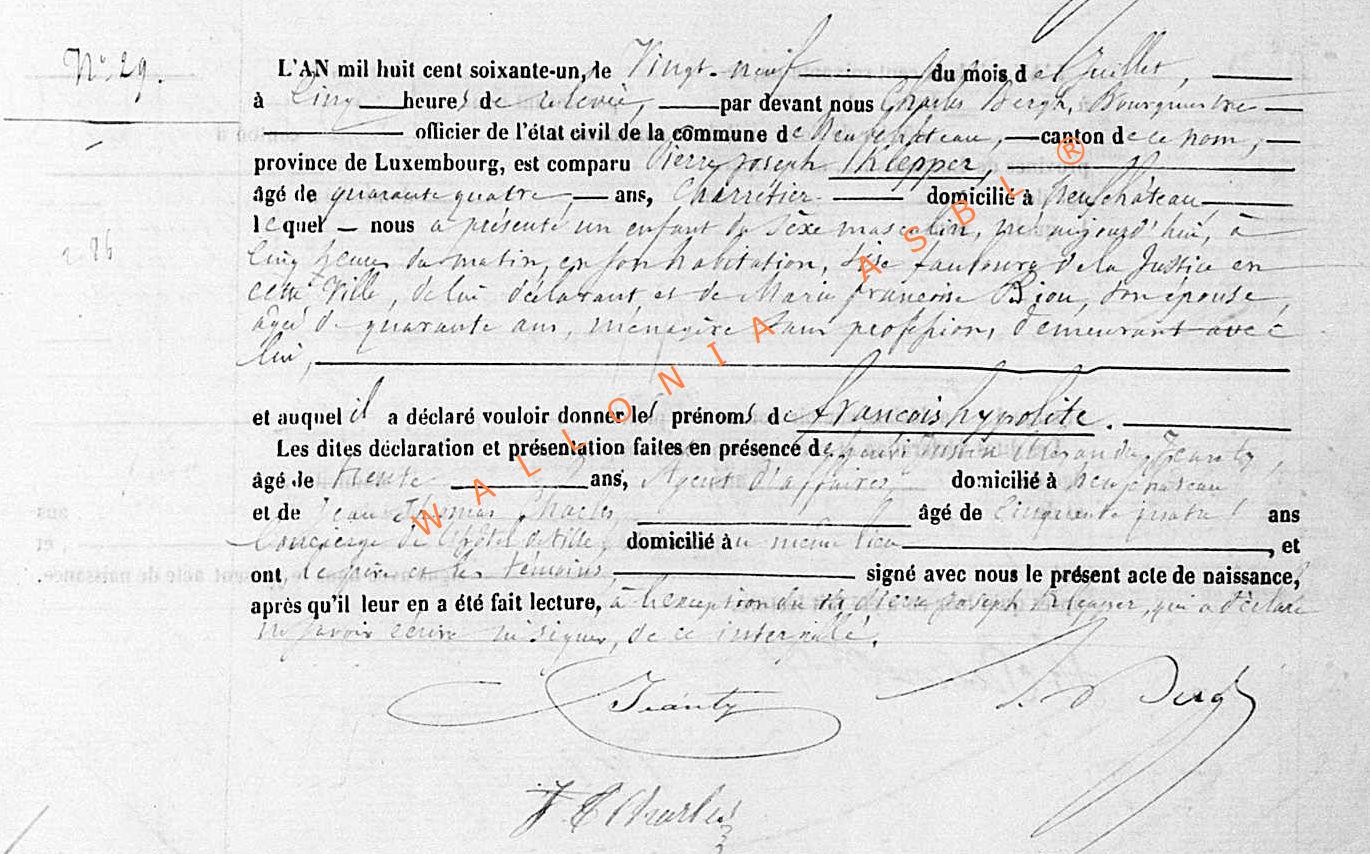 N° 29.
L'AN mil huit cent soixante-un, le Vingt-neuf du mois de Juillet,
à Cinq heures de relevée, par devant nous Charles Bergh, Bourgmestre
officier de l'état civil de la commune de Neufchâteau, canton de ce nom,
province de Luxembourg, est comparu Pierre Joseph Klepper,
âgé de quarante quatre ans, Charretier domicilié à Neufchâteau,
lequel nous a présenté un enfant du sexe masculin, né aujourd'hui, à
Cinq heures du matin, en son habitation, sise faubourg de la Justice en
cette Ville, de lui déclarant et de Marie françoise Bjou, son épouse,
âgée de quarante ans, ménagère sans profession, demeurant avec
lui,
et auquel il a déclaré vouloir donner les prénoms de françois hypolite.
Les dites déclaration et présentation faites en présence de Justin Jeanty
âgé de trente ans, Agent d'affaires, domicilié à Neufchâteau
et de Jean Thomas Charles, âgé de Cinquante quatre ans
Concierge de l'hôtel de Ville, domicilié au même lieu, et
ont le père et les témoins, signé avec nous le présent acte de naissance,
après qu'il leur en a été fait lecture, à l'exception du dit Pierre Joseph Klepper, qui a déclaré
ne savoir écrire ni signer, de ce interpellé.
Jeanty
Bergh
J T Charles
WALLONIA ASBL ®